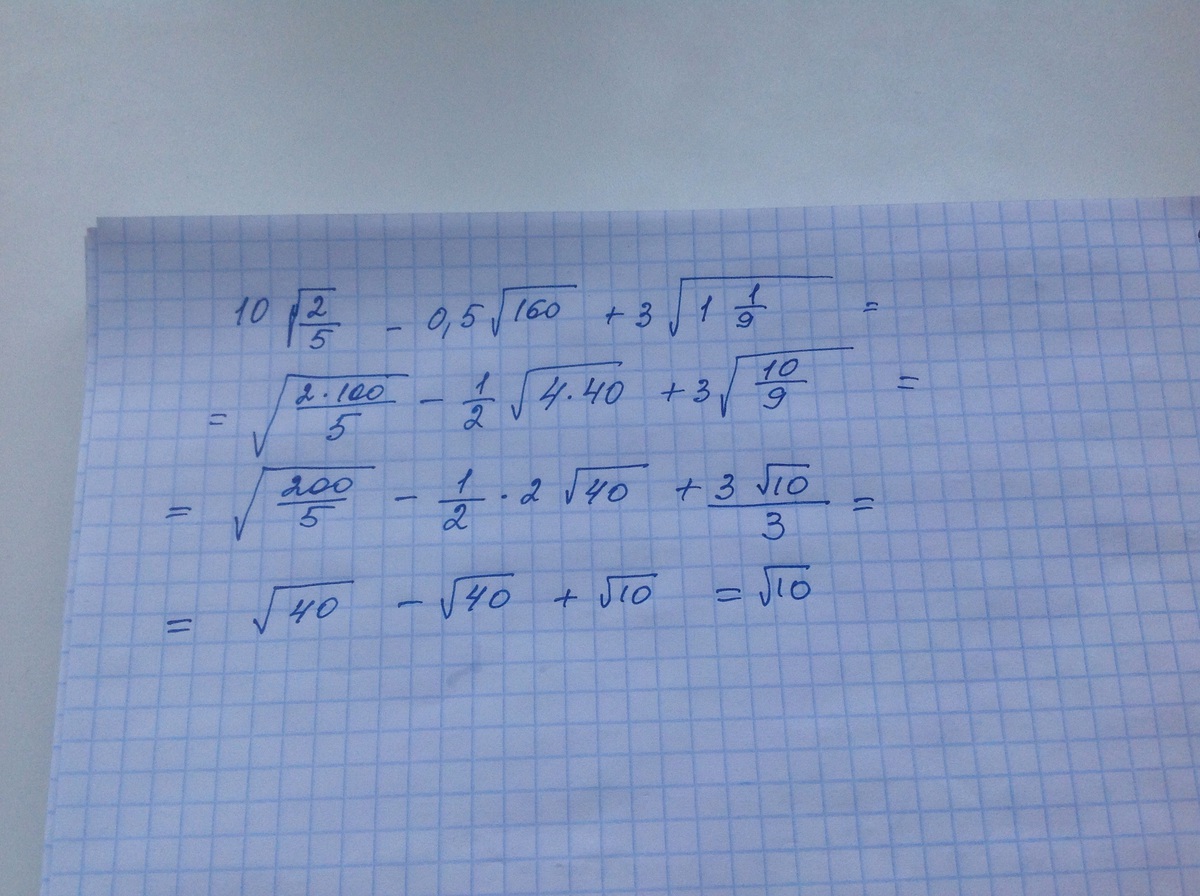 10 √(2/5) - 0,5 √160 + 3 √(1 1/9) =
= √(2·100/5) - 1/2 √(4·40) + 3 √(10/9) =
= √(200/5) - 1/2 · 2 √40 + 3 √10/3 =
= √40 - √40 + √10 = √10